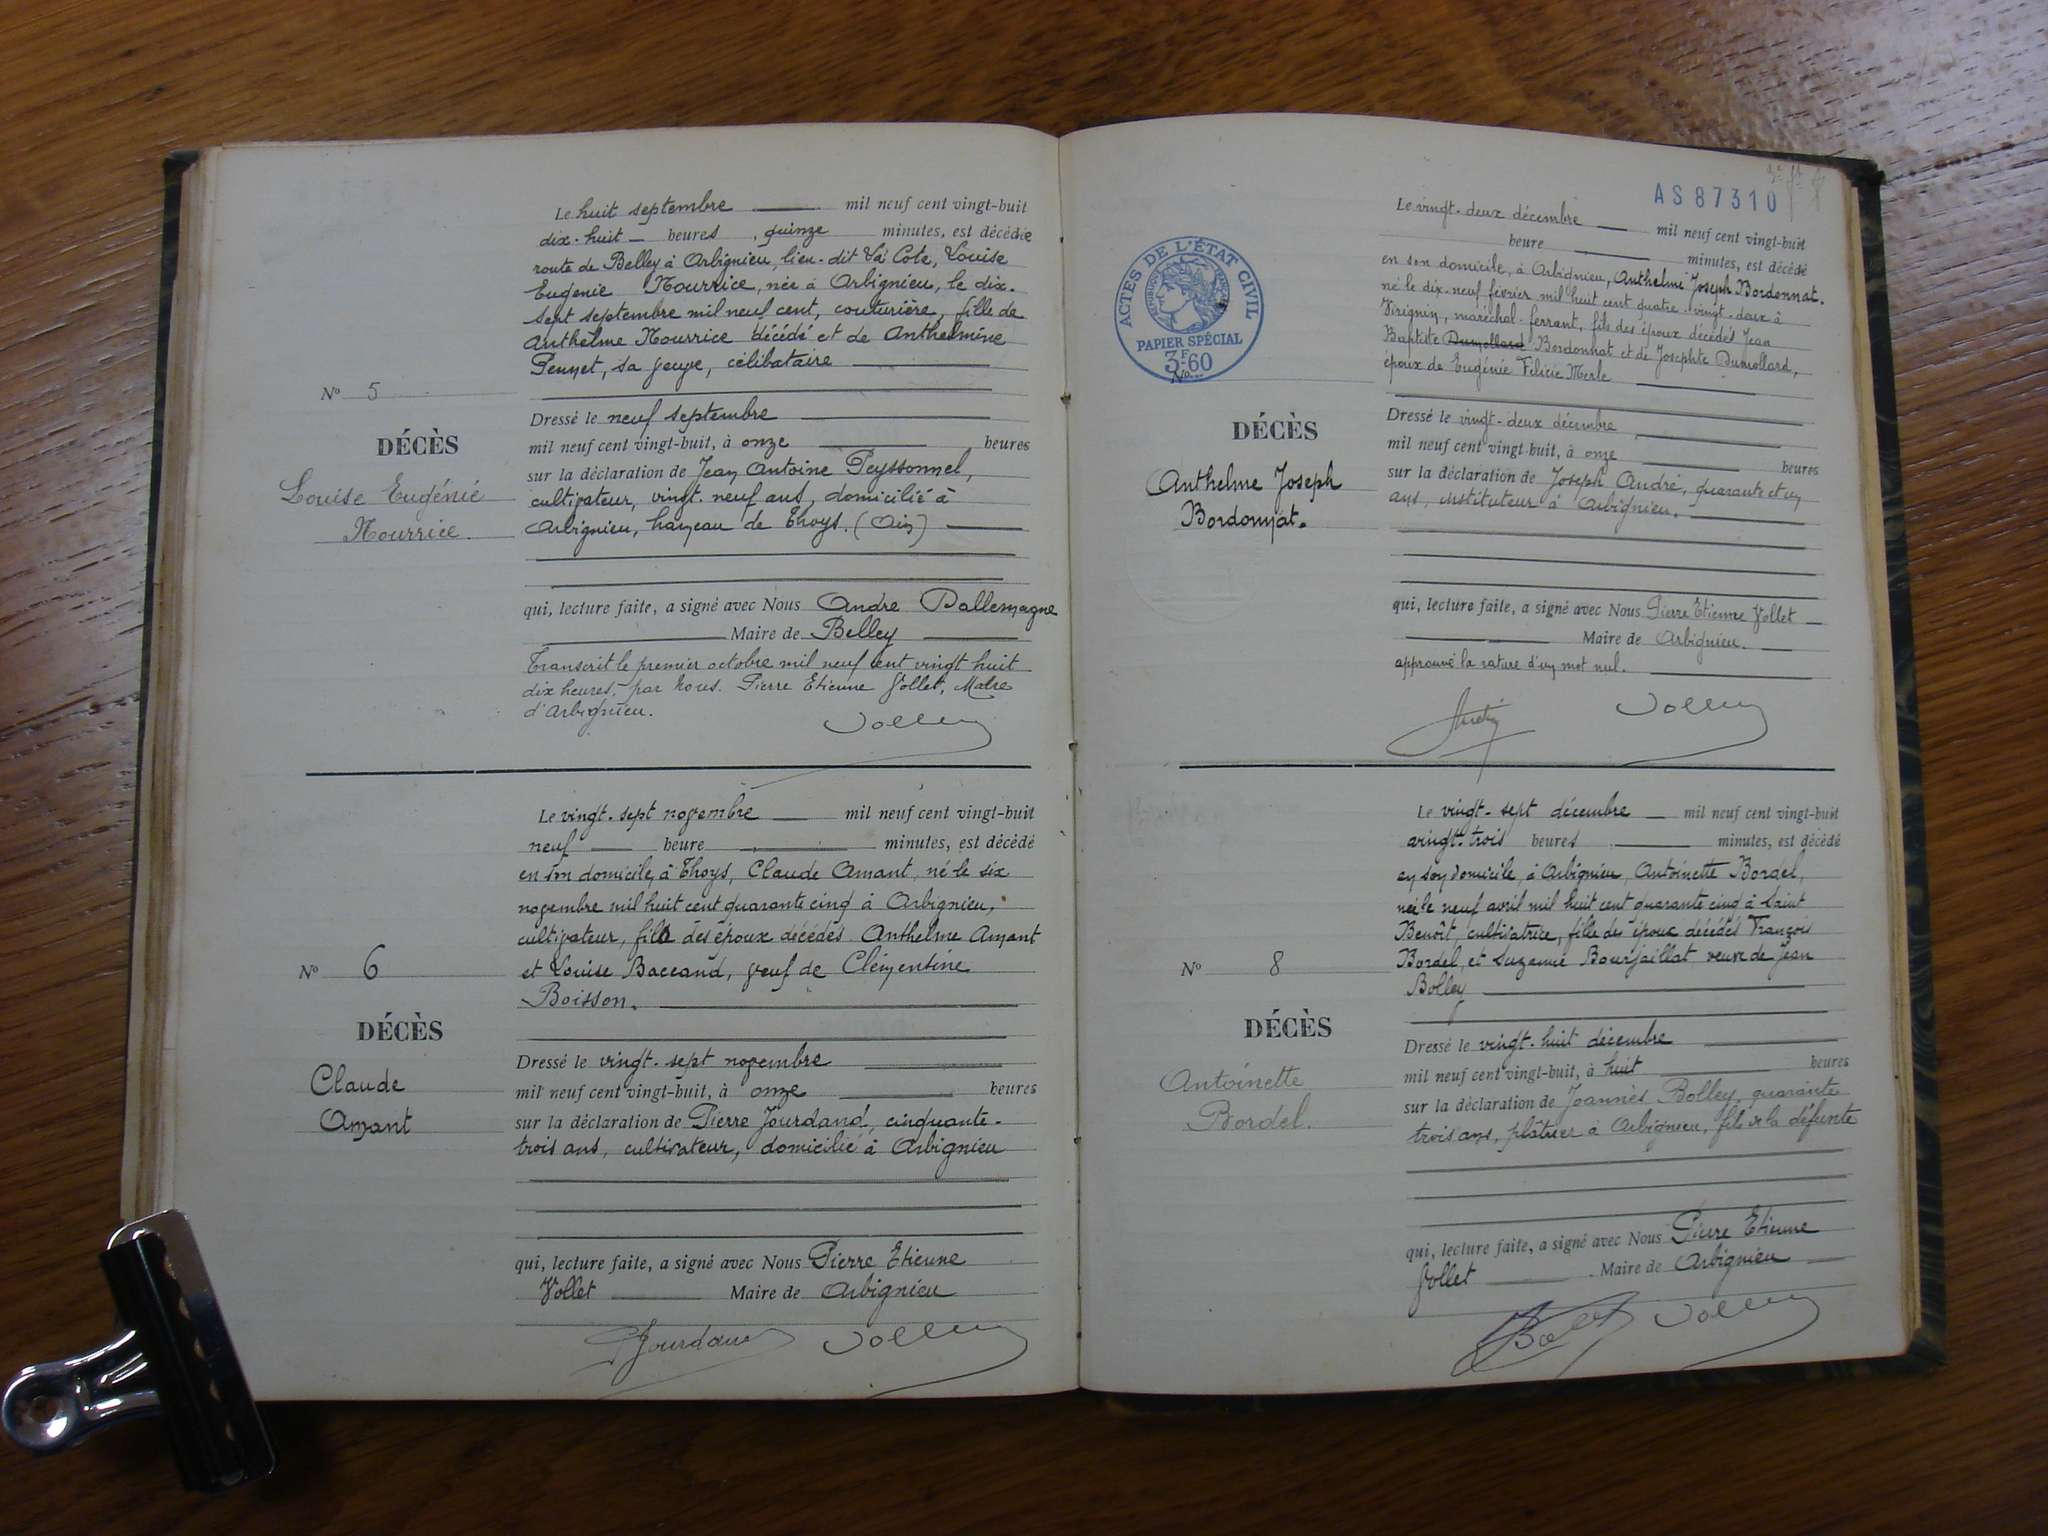 Le huit septembre mil neuf cent vingt-huit
dix-huit heures, quinze minutes, est décédée
route de Belley à Arbignieu, lieu-dit La Cote, Louise
Eugénie Nourrice, née à Arbignieu, le dix-
sept septembre mil neuf cent, couturière, fille de
Anthelme Nourrice décédé et de Anthelmine
Peunet, sa veuve, célibataire
No 5
DÉCÈS
Louise Eugénie
Nourrice.
Dressé le neuf septembre
mil neuf cent vingt-huit, à onze heures
sur la déclaration de Jean Antoine Peyssonnel,
cultivateur, vingt-neuf ans, domicilié à
Arbignieu, hameau de Thoys. (Ain)
qui, lecture faite, a signé avec Nous André Dallemagne
Maire de Belley
Transcrit le premier octobre mil neuf cent vingt huit
dix heures, par Nous. Pierre Etienne Vollet, Maire
d'Arbignieu.
Vollet
Le vingt-sept novembre mil neuf cent vingt-huit
neuf heure minutes, est décédé
en son domicile, à Thoys, Claude Amant, né le six
novembre mil huit cent quarante cinq à Arbignieu,
cultivateur, fils des époux décédés Anthelme Amant
et Louise Baccand, veuf de Clémentine
Boisson.
No 6
DÉCÈS
Claude
Amant
Dressé le vingt-sept novembre
mil neuf cent vingt-huit, à onze heures
sur la déclaration de Pierre Jourdand, cinquante-
trois ans, cultivateur, domicilié à Arbignieu
qui, lecture faite, a signé avec Nous Pierre Etienne
Vollet Maire de Arbignieu
P Jourdand Vollet
AS 87310
ACTES DE L'ÉTAT CIVIL
RÉPUBLIQUE FRANÇAISE
PAPIER SPÉCIAL
3F60
No
Le vingt-deux décembre mil neuf cent vingt-huit
heure minutes, est décédé
en son domicile, à Arbignieu, Anthelme Joseph Bordonnat.
né le dix-neuf février mil huit cent quatre-vingt-deux à
Virignin, maréchal-ferrant, fils des époux décédés Jean
Baptiste Dumollard Bordonnat et de Josephte Dumollard,
époux de Eugénie Félicie Merle
DÉCÈS
Anthelme Joseph
Bordonnat.
Dressé le vingt-deux décembre
mil neuf cent vingt-huit, à onze heures
sur la déclaration de Joseph André, quarante et un
ans, instituteur à Arbignieu.
qui, lecture faite, a signé avec Nous Pierre Etienne Vollet
Maire de Arbignieu.
approuvé la rature d'un mot nul.
Vollet
Le vingt-sept décembre mil neuf cent vingt-huit
vingt-trois heures minutes, est décédé
en son domicile, à Arbignieu, Antoinette Bordel,
née le neuf avril mil huit cent quarante cinq à Saint
Benoît, cultivatrice, fille des époux décédés François
Bordel, et Suzanne Bourjaillat veuve de Jean
Bolley
No 8
DÉCÈS
Antoinette
Bordel.
Dressé le vingt-huit décembre
mil neuf cent vingt-huit, à huit heures
sur la déclaration de Joannès Bolley, quarante
trois ans, plâtrier à Arbignieu, fils de la défunte
qui, lecture faite, a signé avec Nous Pierre Etienne
Vollet Maire de Arbignieu
Vollet